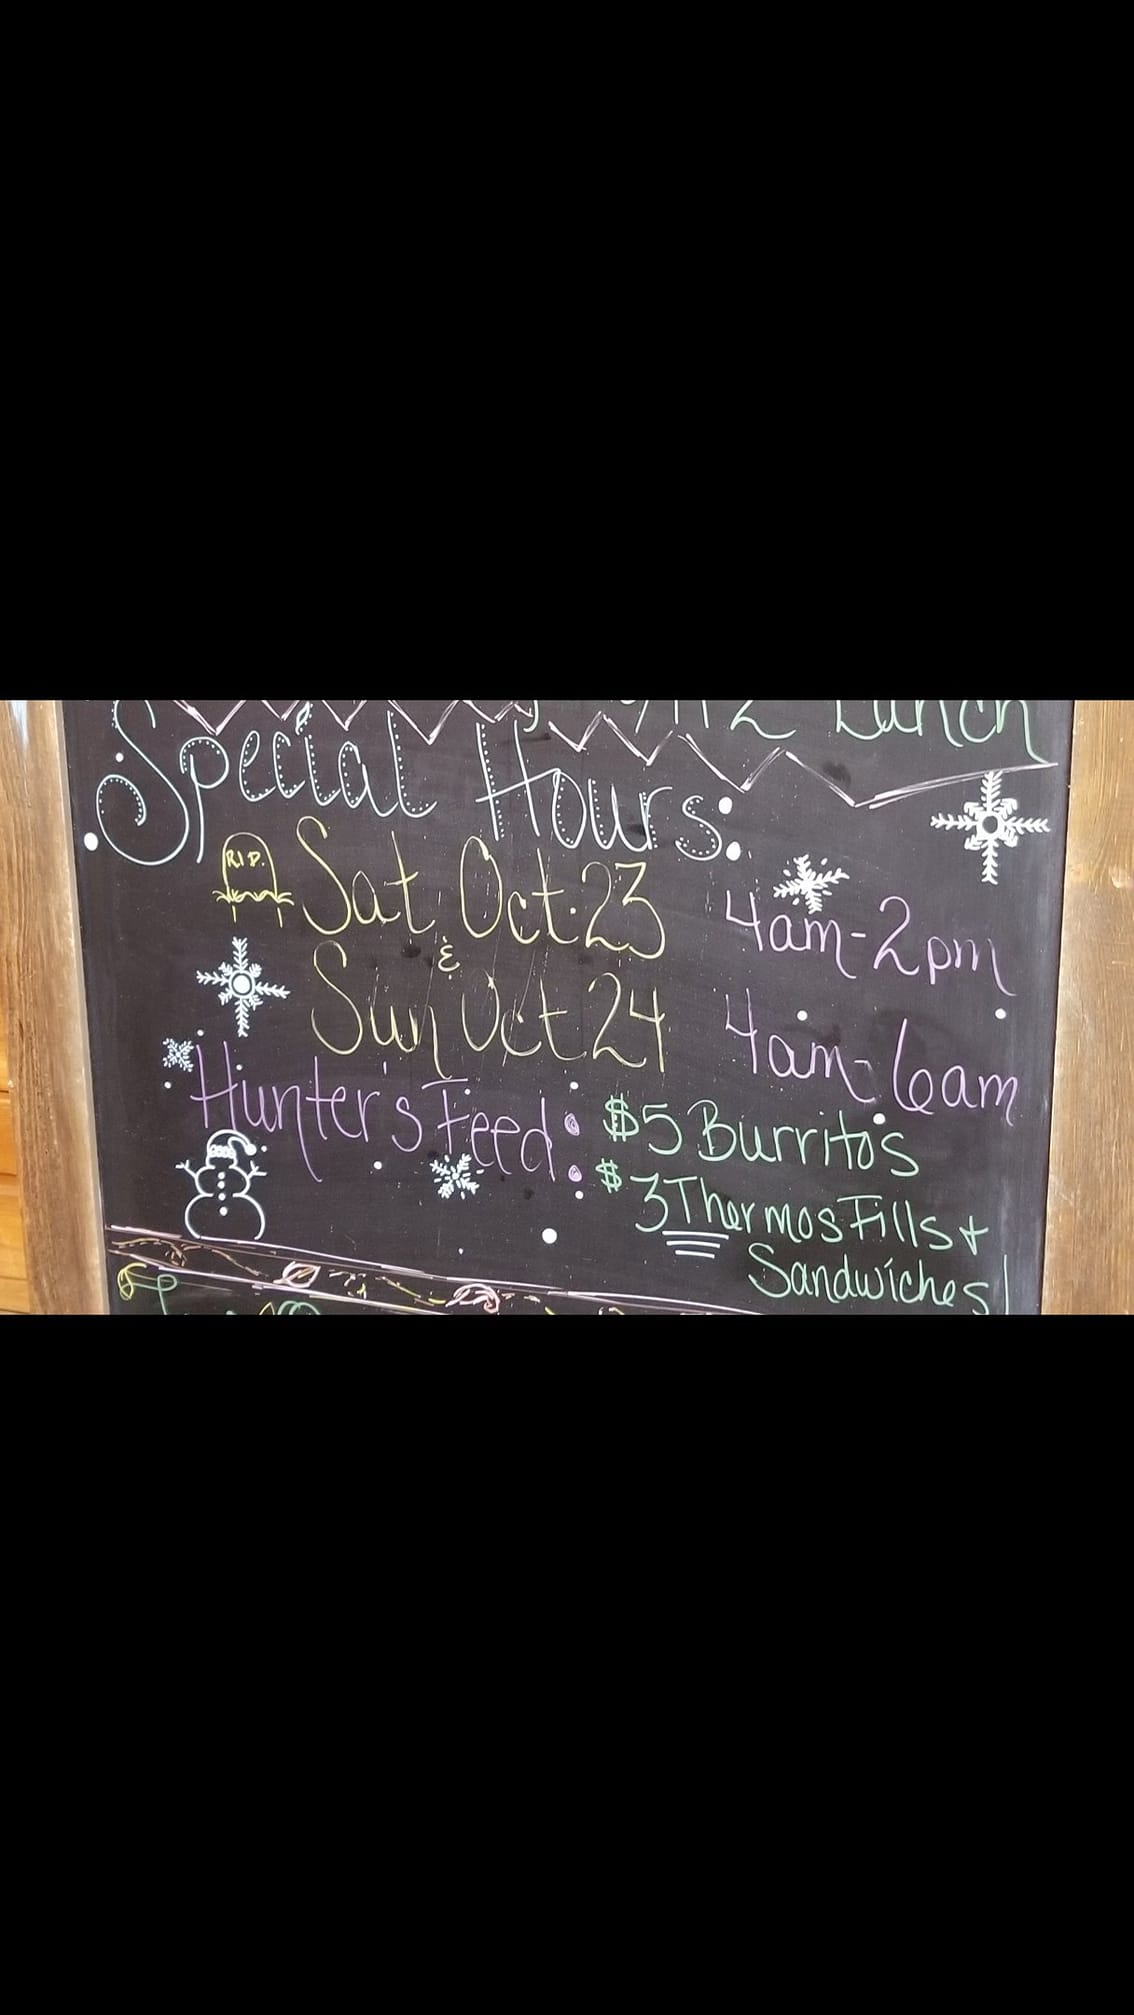 Lunch
Special Hours:
R.I.P.
Sat Oct. 23 4am-2pm
&
Sun Oct 24 4am-6am
Hunter's Feed: $5 Burritos
$3 Thermos Fills +
Sandwiches!